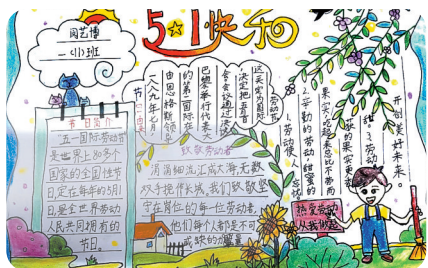 5·1快乐
闫艺博
一(1)班
节日简介
五一国际劳动节
是世界上80多个
国家的全国性节
日,定在每年的5月1
日,是全世界劳动
人民共同拥有的
节日。
一八八九年七月
由恩格斯领
的第二国际在
巴黎举行代表大
会会议通过决
,决定把五
这天定为国际
劳动节
致敬劳动者
涓涓细流,汇成大海,无数
双手托伴长城,我们致敬坚
守在岗位的每一位劳动者,
他们每个人都是不可
或缺的力量
1.劳动使人忘忧
2.辛勤的劳动甜蜜的
果实,吃起来总比不劳而
获的果实更香
甜。3.劳动
开创美好未来。
热爱劳动
从我做起